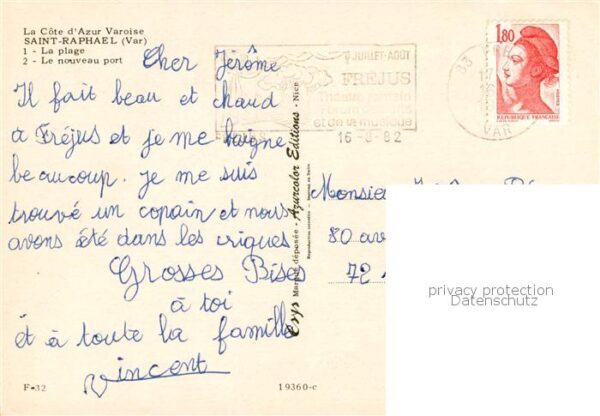 La Côte d'Azur Varoise
SAINT-RAPHAEL (Var)
1 - La plage
2 - Le nouveau port
Cher Jérôme
Il fait beau et chaud
à Fréjus et je me baigne
beaucoup. je me suis
trouvé un copain et nous
avons été dans les criques
Grosses Bises
à toi
et à toute la famille
Vincent
F-32
19360-c
Marque déposée - Azurcolor Editions - Nice
JUILLET-AOÛT
FRÉJUS
et de la musique
16-8-82
83
VAR
1,80
REPUBLIQUE FRANÇAISE
Monsieur
80 av
72
privacy protection
Datenschutz